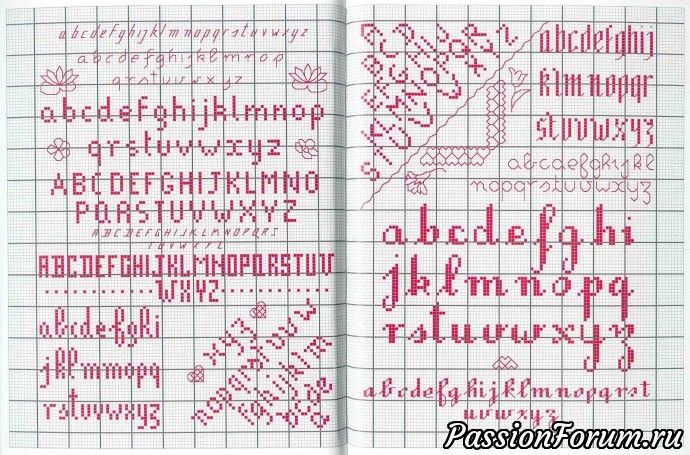 abcdefghijklmnopqrstuvwxyz
abcdefghijklmnop
qrstuvwxyz
abcdefghijklmnop
qrstuvwxyz
ABCDEFGHIJKLMNO
PQRSTUVWXYZ
ABCDEFGHIJKLMNOPQRS
TUVWXYZ
ABCDEFGHIJKLMNOPQRSTUV
WXYZ
abcdefghi
jklmnopq
rstuvwxyz
abcdefghij
klmnopqr
stuvwxyz
abcdefghijkl
mnopqrstuvwxyz
abcdefghi
jklmnopq
rstuvwxyz
abcdefghijklmnopqrst
uvwxyz
PassionForum.ru